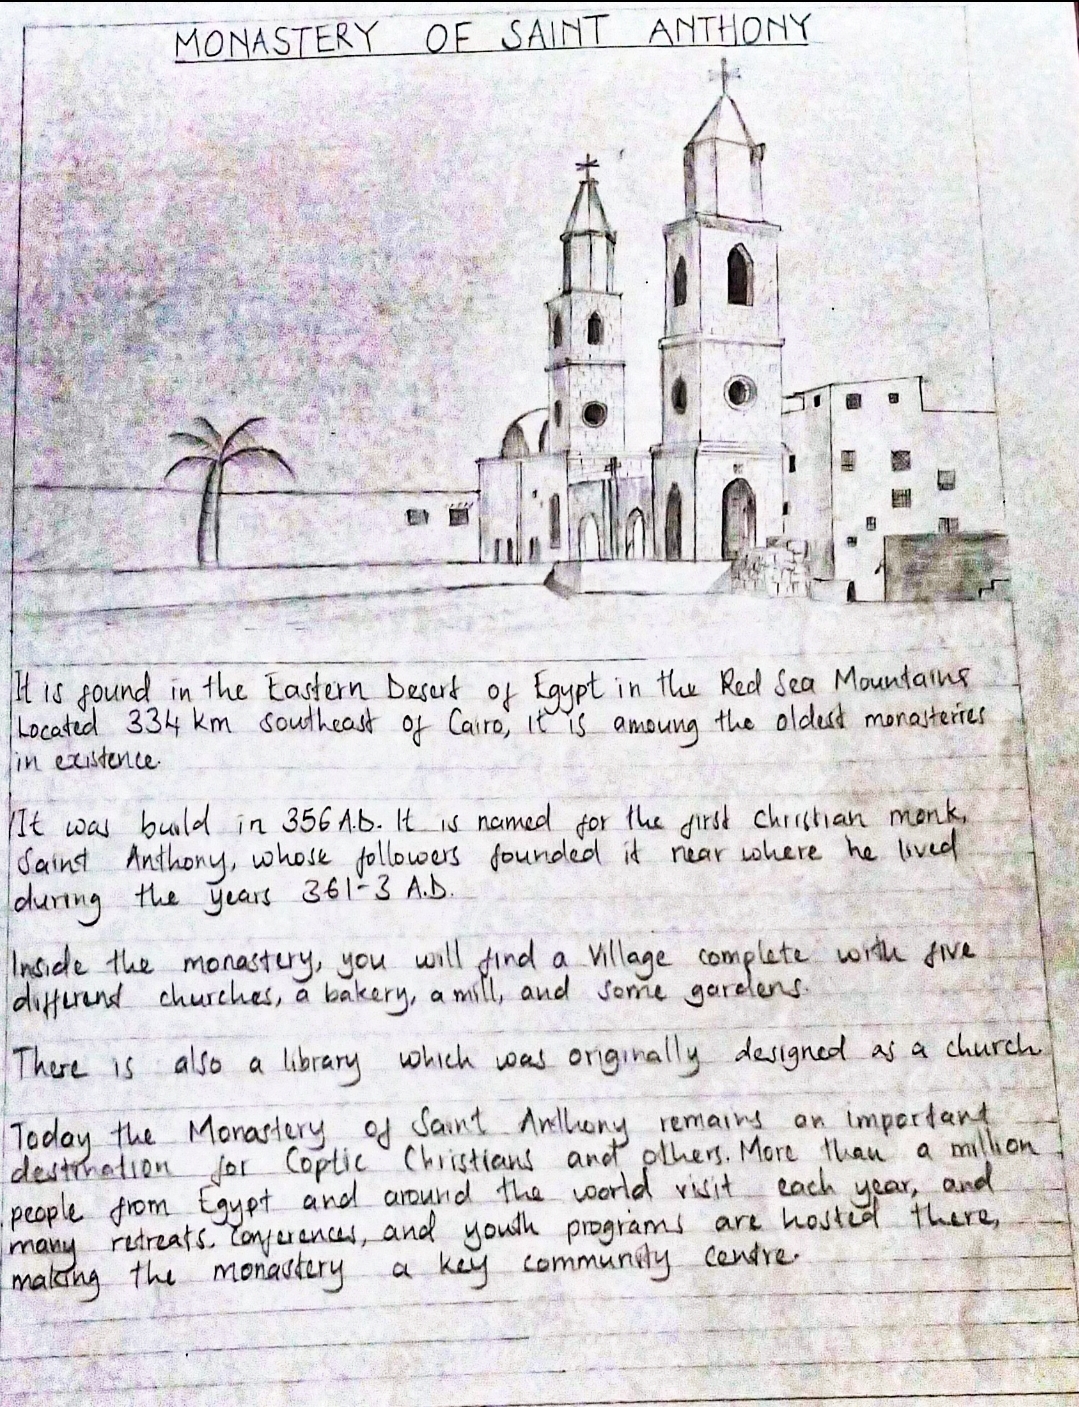 MONASTERY OF SAINT ANTHONY
It is found in the Eastern Desert of Egypt in the Red Sea Mountains
Located 334 km southeast of Cairo, it is amoung the oldest monasteries
in existence.
It was build in 356 A.D. It is named for the first christian monk,
Saint Anthony, whose followers founded it near where he lived
during the years 361-3 A.D.
Inside the monastery, you will find a village complete with five
different churches, a bakery, a mill, and some gardens.
There is also a library which was originally designed as a church
Today the Monastery of Saint Anthony remains an important
destination for Coptic Christians and others. More than a million
people from Egypt and around the world visit each year, and
many retreats. Conferences, and youth programs are hosted there,
making the monastery a key community centre.